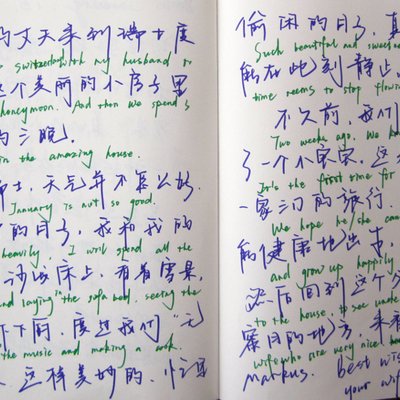 的丈夫来到瑞士度
to switzerland with my husband to
这个美丽的小房子里
honeymoon. And then we spend 3
的三晚。
in the amazing house.
士,天气并不怎么好。
January is not so good.
的日子,我和我的
heavily, I will spend all the
沙发床上,看着雪景,
and laying the sofa bed, seeing the
下雨,度过我们
the music and making a
这样美妙的,忙里
偷闲的日子,真
Such beautiful and sweet
能在此刻静止
time seems to stop flowing
不久前,我们
Two weeks ago, We
了一个小宝宝,这
It's the first time for
一家三口的旅行。
We hope he/she can
能健康地出生,
and grow up happily
然后回到这个
to the house, to see
蜜月的地方,来
wife who are very nice
Markus. best wis
your wif